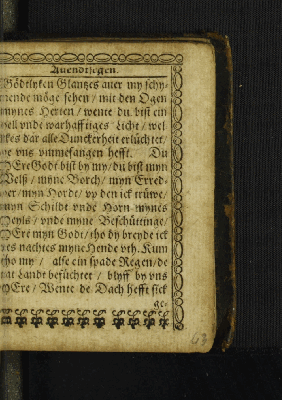 Auendtsegen.
Gödtlyken Glantzes auer my schy-
nende möge sehen / mit den Ogen
mynes Herten / wente du bist ein
hell vnde warhafftiges Licht / wel
kes dar alle Dunckerheit erlüchtet /
de vns vmmefangen hefft. Du
HEre Godt bist by my / du bist myn
Velß / myne Borch / myn Erred-
der / myn Hordt / vp den ick trüwe /
myn Schildt vnde Horn mynes
Heyls / vnde myne Beschüttinge /
HEre myn Godt / tho dy breyde ick
des nachtes myne Hende vth. Kum
tho my / alse ein spade Regen / de
dat Landt befüchtet / blyff by vns
HEre / Wente de Dach hefft sick
ge-
63